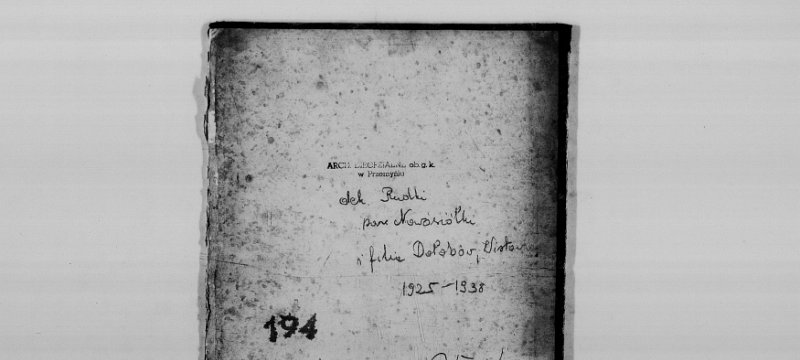 ARCH. DIECEZJALNE ob. g. k.
w Przemyślu
dek Rudki
par Nowosiółki
i filia Dołobów,
1925-1938
194